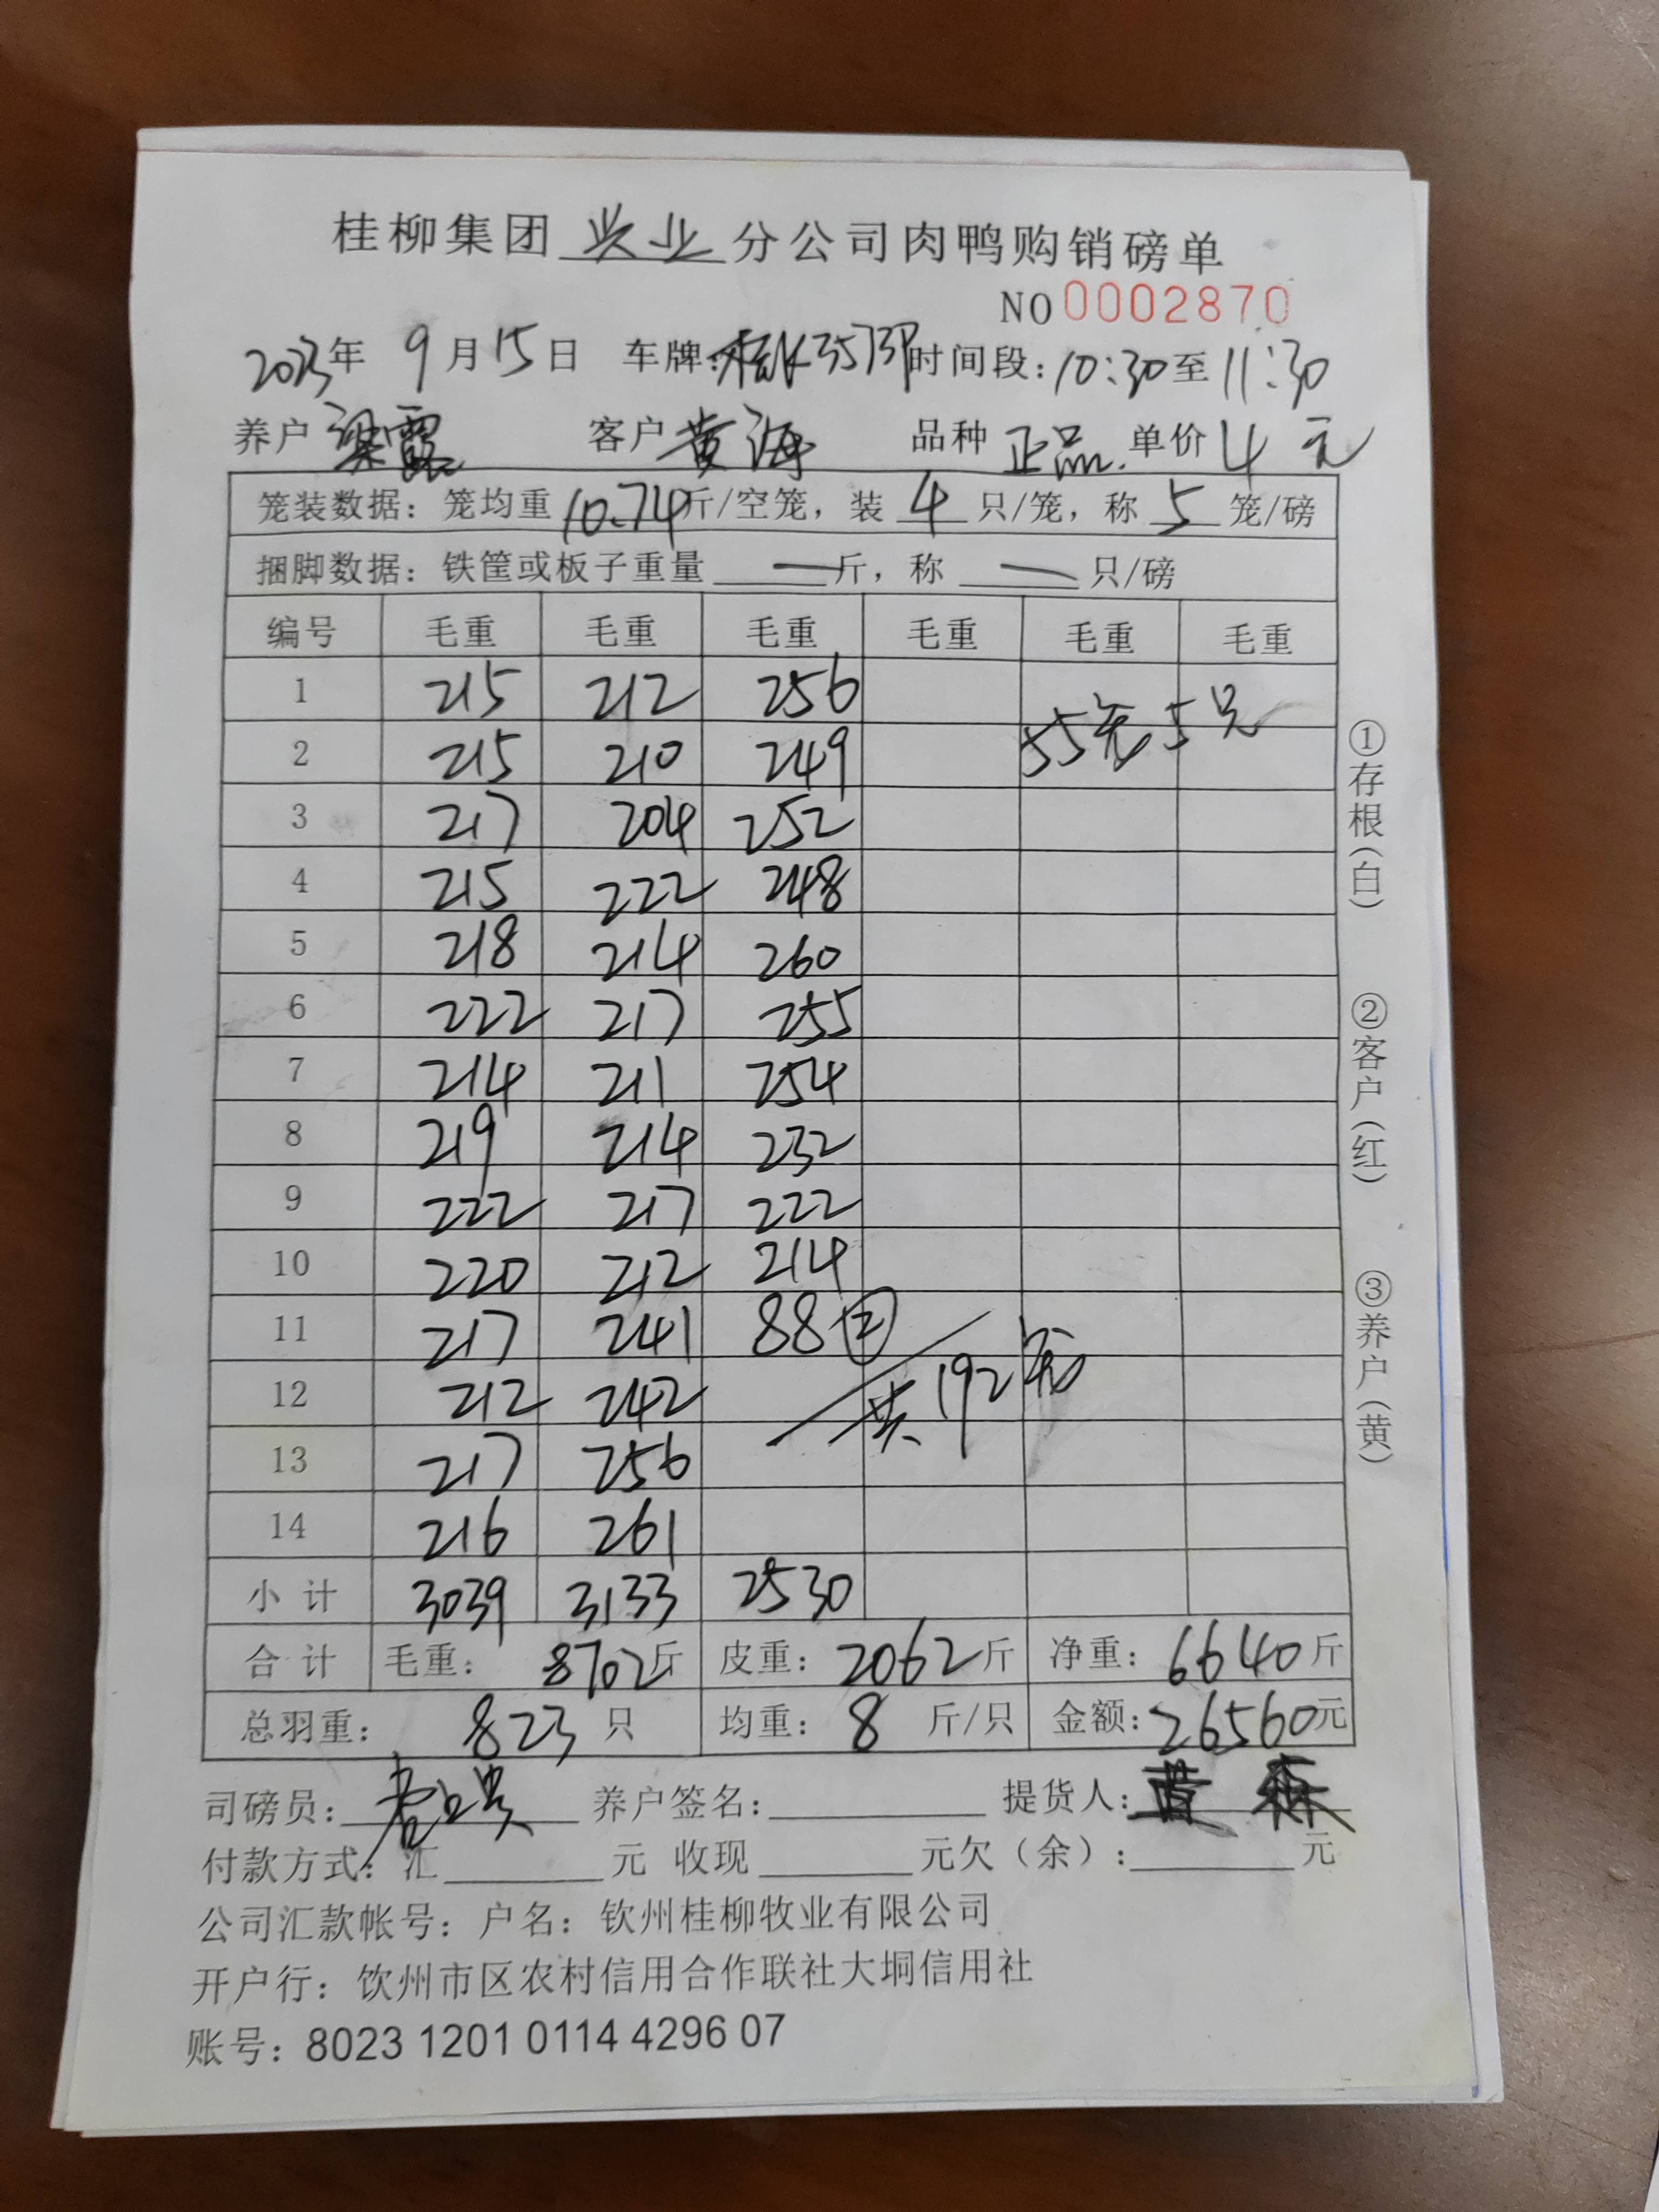 桂柳集团 兴业 分公司肉鸭购销磅单
NO 0002870
2023年 9月15日 车牌: 时间段:10:30至11:30
养户 梁霞 客户 黄海 品种 正品 单价 4元
笼装数据: 笼均重 10.74斤/空笼, 装 4 只/笼, 称 5 笼/磅
捆脚数据: 铁筐或板子重量 — 斤, 称 — 只/磅
编号 毛重 毛重 毛重 毛重 毛重 毛重
1 215 212 256
55笼5只
2 215 210 249
3 217 204 252
4 215 222 248
5 218 214 260
6 222 217 255
7 214 211 254
8 219 214 232
9 222 217 222
10 220 212 214
11 217 241 88②
共192笼
12 212 242
13 217 256
14 216 261
小计 3039 3133 2530
合计 毛重: 8702斤 皮重: 2062斤 净重: 6640斤
总羽重: 823 只 均重: 8 斤/只 金额: 26560元
司磅员: 养户签名: 提货人: 黄森
付款方式: 汇 元 收现 元欠(余): 元
公司汇款帐号: 户名: 钦州桂柳牧业有限公司
开户行: 钦州市区农村信用合作联社大垌信用社
账号: 8023 1201 0114 4296 07
①存根(白)
②客户(红)
③养户(黄)